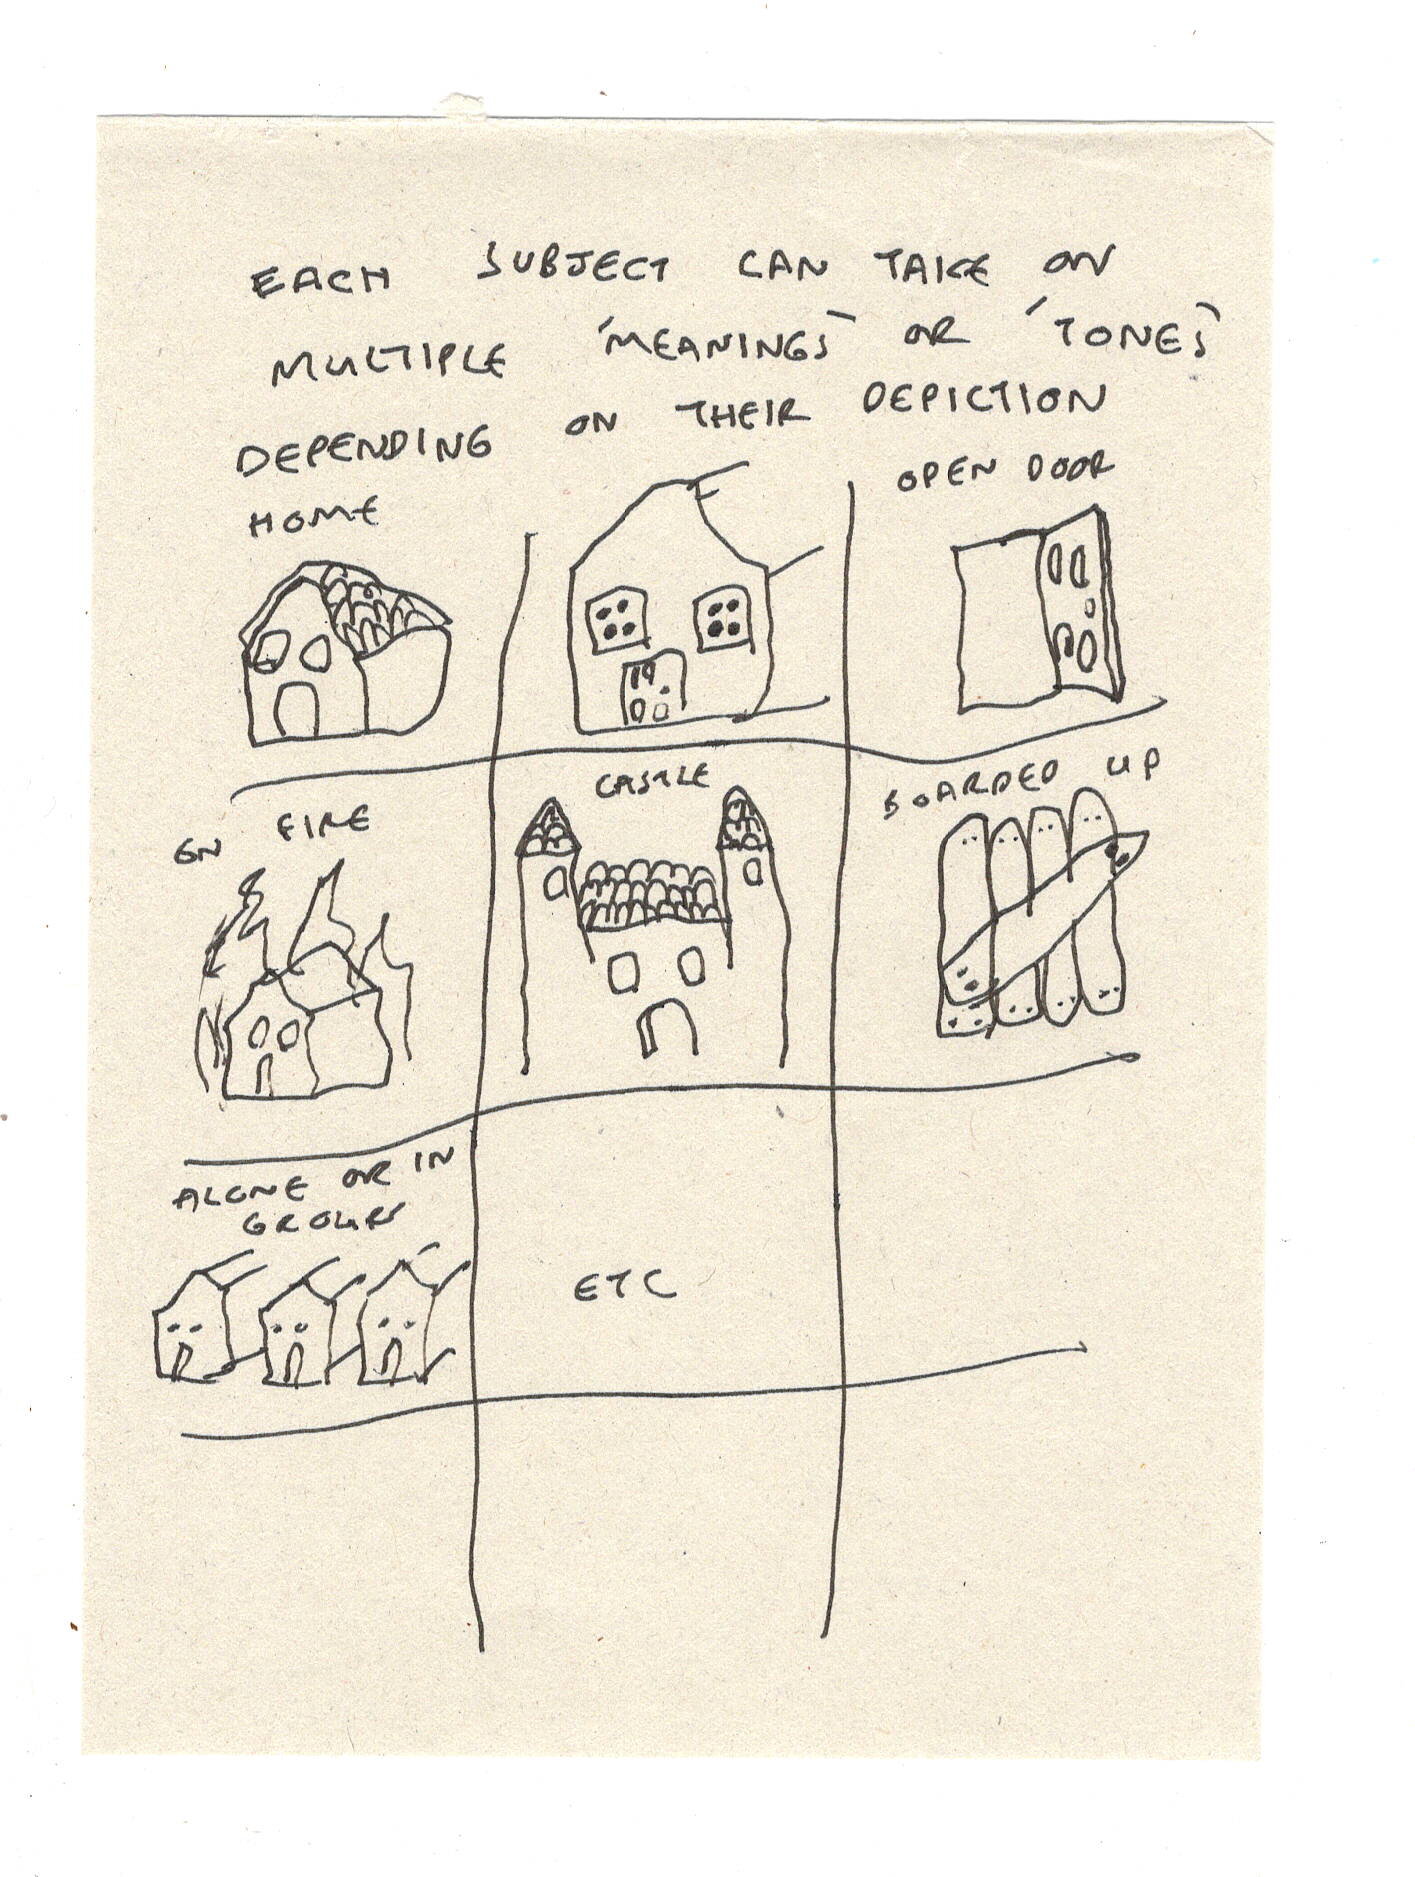 EACH SUBJECT CAN TAKE ON
MULTIPLE 'MEANINGS' OR 'TONES'
DEPENDING ON THEIR DEPICTION
HOME
OPEN DOOR
ON FIRE
CASTLE
BOARDED UP
ALONE OR IN
GROUPS
ETC